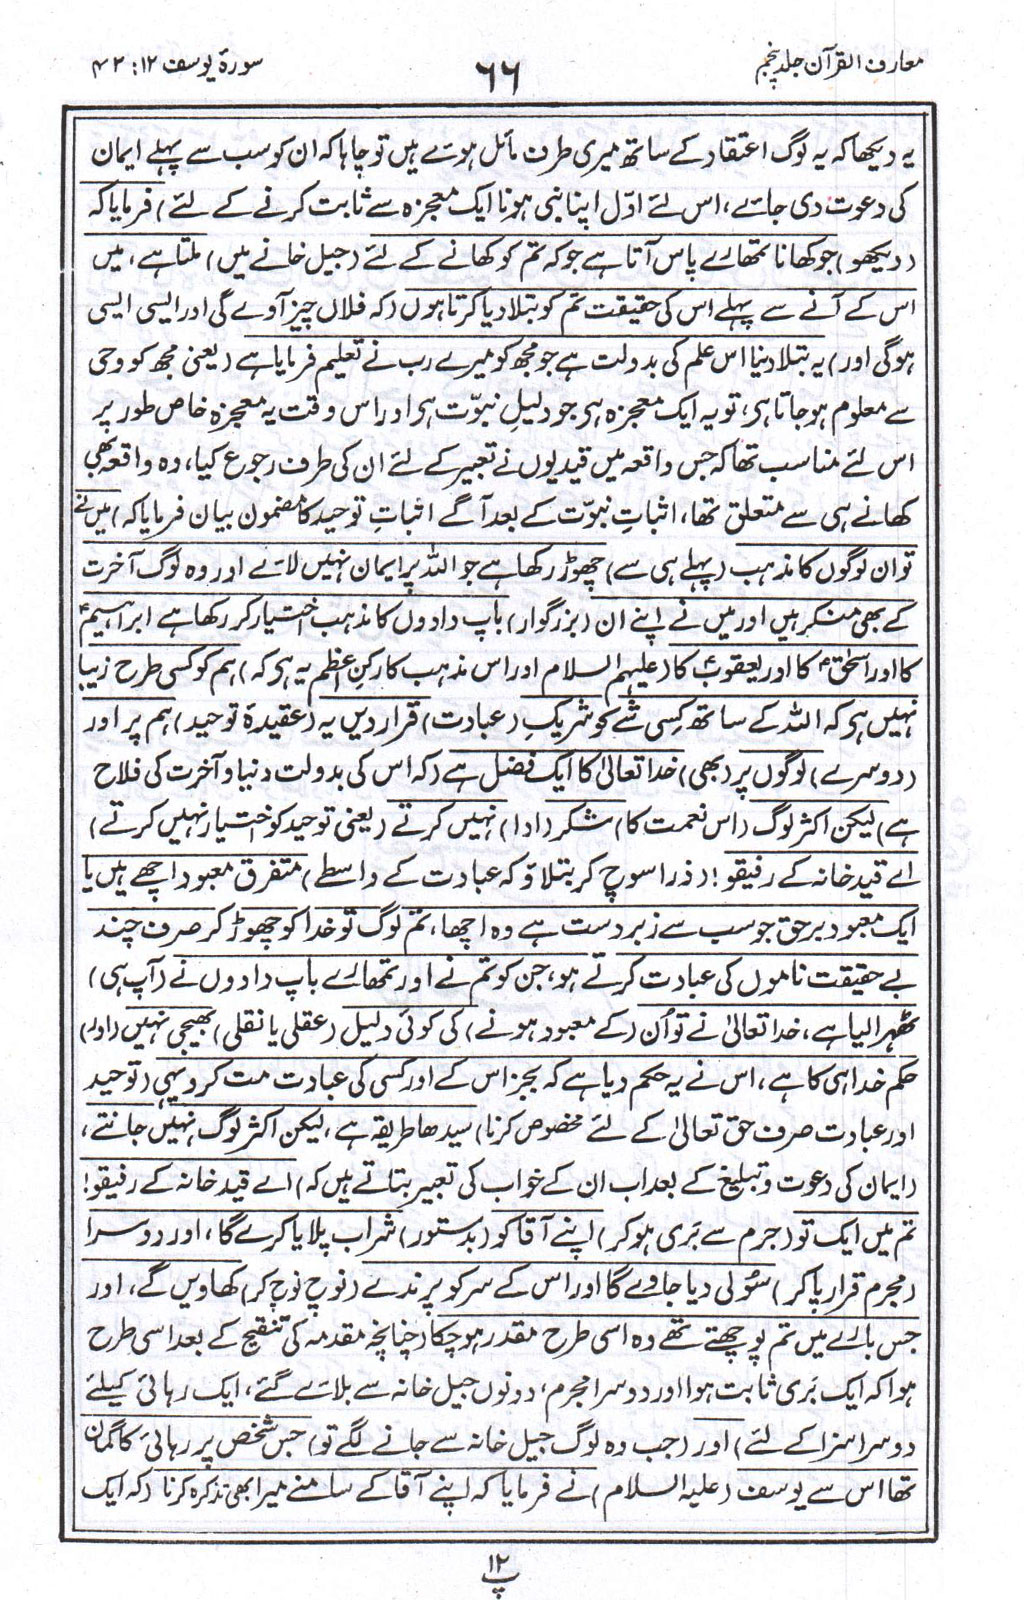 معارف القرآن جلد پنجم
۶۶
سورۃ یوسف ۱۲ : ۴۲
یہ دیکھا کہ یہ لوگ اعتقاد کے ساتھ میری طرف مائل ہوئے ہیں تو چاہا کہ ان کو سب سے پہلے ایمان
کی دعوت دی جائے، اس لئے اوّل اپنا نبی ہونا ایک معجزہ سے ثابت کرنے کے لئے) فرمایا کہ
(دیکھو) جو کھانا تمھارے پاس آتا ہے جو کہ تم کو کھانے کے لئے (جیل خانے میں) ملتا ہے، میں
اس کے آنے سے پہلے اس کی حقیقت تم کو بتلا دیا کرتا ہوں (کہ فلاں چیز آوے گی اور ایسی ایسی
ہوگی اور) یہ بتلا دینا اس علم کی بدولت ہے جو مجھ کو میرے رب نے تعلیم فرمایا ہے (یعنی مجھ کو وحی
سے معلوم ہو جاتا ہی، تو یہ ایک معجزہ ہی جو دلیلِ نبوّت ہی اور اس وقت یہ معجزہ خاص طور پر
اس لئے مناسب تھا کہ جس واقعہ میں قیدیوں نے تعبیر کے لئے ان کی طرف رجوع کیا، وہ واقعہ بھی
کھانے ہی سے متعلق تھا، اثباتِ نبوّت کے بعد آگے اثباتِ توحید کا مضمون بیان فرمایا کہ) میں نے
تو ان لوگوں کا مذہب (پہلے ہی سے) چھوڑ رکھا ہے جو اللہ پر ایمان نہیں لائے اور وہ لوگ آخرت
کے بھی منکر ہیں اور میں نے اپنے ان (بزرگوار) باپ دادوں کا مذہب اختیار کر رکھا ہے ابراہیمؑ
کا اور اسحٰقؑ کا اور یعقوبؑ کا (علیہم السلام اور اس مذہب کا رکنِ اعظم یہ ہی کہ) ہم کو کسی طرح زیبا
نہیں ہی کہ اللہ کے ساتھ کسی شے کو شریکِ (عبادت) قرار دیں یہ (عقیدۂ توحید) ہم پر اور
(دوسرے) لوگوں پر (بھی) خدا تعالیٰ کا ایک فضل ہے (کہ اس کی بدولت دنیا و آخرت کی فلاح
ہے) لیکن اکثر لوگ (اس نعمت کا) شکر (ادا) نہیں کرتے (یعنی توحید کو اختیار نہیں کرتے)
اے قید خانہ کے رفیقو! (ذرا سوچ کر بتلاؤ کہ عبادت کے واسطے) متفرق معبود اچھے ہیں یا
ایک معبود برحق جو سب سے زبردست ہے وہ اچھا، تم لوگ تو خدا کو چھوڑ کر صرف چند
بے حقیقت ناموں کی عبادت کرتے ہو، جن کو تم نے اور تمھارے باپ دادوں نے (آپ ہی)
ٹھہرا لیا ہے، خدا تعالیٰ نے تو اُن (کے معبود ہونے) کی کوئی دلیل (عقلی یا نقلی) بھیجی نہیں (اور)
حکم خدا ہی کا ہے، اس نے یہ حکم دیا ہے کہ بجز اس کے اور کسی کی عبادت مت کرو یہی (توحید
اور عبادت صرف حق تعالیٰ کے لئے مخصوص کرنا) سیدھا طریقہ ہے، لیکن اکثر لوگ نہیں جانتے،
(ایمان کی دعوت و تبلیغ کے بعد اب ان کے خواب کی تعبیر بتاتے ہیں کہ) اے قید خانہ کے رفیقو!
تم میں ایک تو (جرم سے بَری ہو کر) اپنے آقا کو (بدستور) شراب پلایا کرے گا، اور دوسرا
(مجرم قرار پا کر) سُولی دیا جاوے گا اور اس کے سر کو پرندے (نوچ نوچ کر) کھاویں گے، اور
جس بارے میں تم پوچھتے تھے وہ اسی طرح مقدر ہو چکا (چنانچہ مقدمہ کی تنقیح کے بعد اسی طرح
ہوا کہ ایک بَری ثابت ہوا اور دوسرا مجرم، دونوں جیل خانہ سے بلائے گئے، ایک رہائی کیلئے
دوسرا سزا کے لئے) اور (جب وہ لوگ جیل خانہ سے جانے لگے تو) جس شخص پر رہائی کا گمان
تھا اس سے یوسف (علیہ السلام) نے فرمایا کہ اپنے آقا کے سامنے میرا بھی تذکرہ کرنا (کہ ایک
۱۲
پ